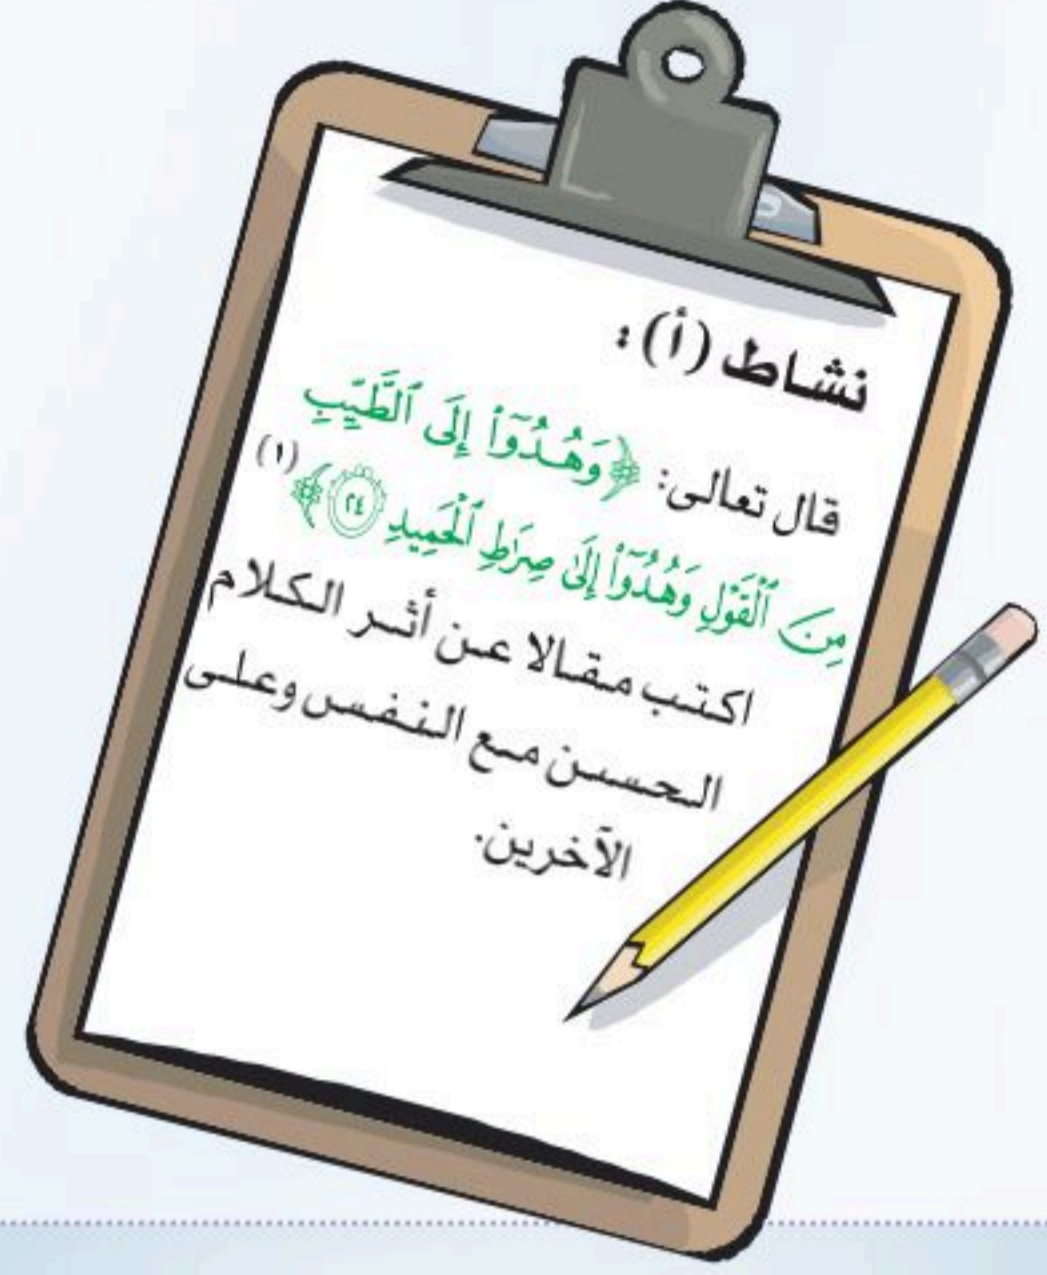 نشاط (أ) :
قال تعالى: ﴿وَهُدُوٓا۟ إِلَى ٱلطَّيِّبِ
مِنَ ٱلْقَوْلِ وَهُدُوٓا۟ إِلَىٰ صِرَٰطِ ٱلْحَمِيدِ ٢٤﴾ (١)
اكتب مقالا عن أثر الكلام
الحسن مع النفس وعلى
الآخرين.